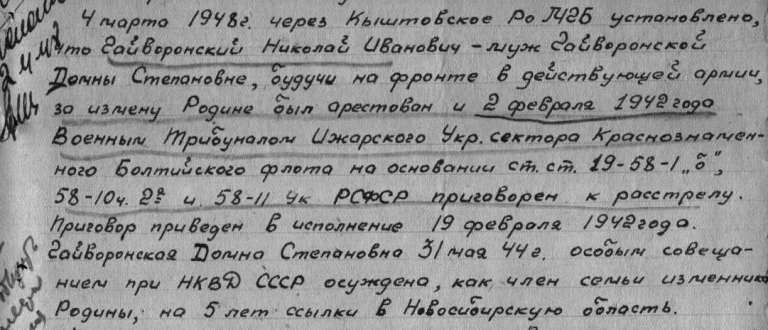 4 марта 1948г. через Кыштовское РО МГБ установлено,
что Гайворонский Николай Иванович - муж Гайворонской
Домны Степановне, будучи на фронте в действующей армии,
за измену Родине был арестован и 2 февраля 1942 года
Военным Трибуналом Ижарского Укр. сектора Краснознамен-
ного Балтийского флота на основании ст. ст. 19-58-1 „б",
58-10 ч. 2ª и 58-11 УК РСФСР приговорен к расстрелу.
Приговор приведен в исполнение 19 февраля 1942 года.
Гайворонская Домна Степановна 31 мая 44 г. особым совеща-
нием при НКВД СССР осуждена, как член семьи изменника
Родины, на 5 лет ссылки в Новосибирскую область.